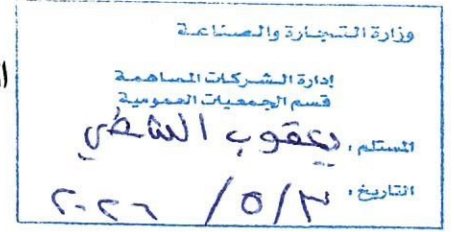 وزارة التجارة والصناعة
إدارة الشركات المساهمة
قسم الجمعيات العمومية
المستلم: يعقوب
التاريخ: ٣/٥/٢٠٢٦